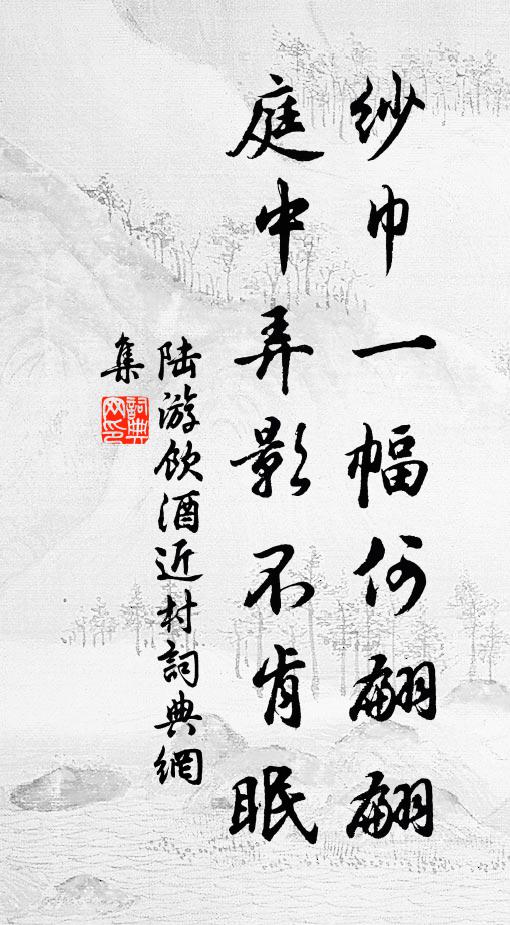 紗巾一幅何翩翩
庭中弄影不肯眠
陆游飲酒近村詞典網
集
詞典
网印